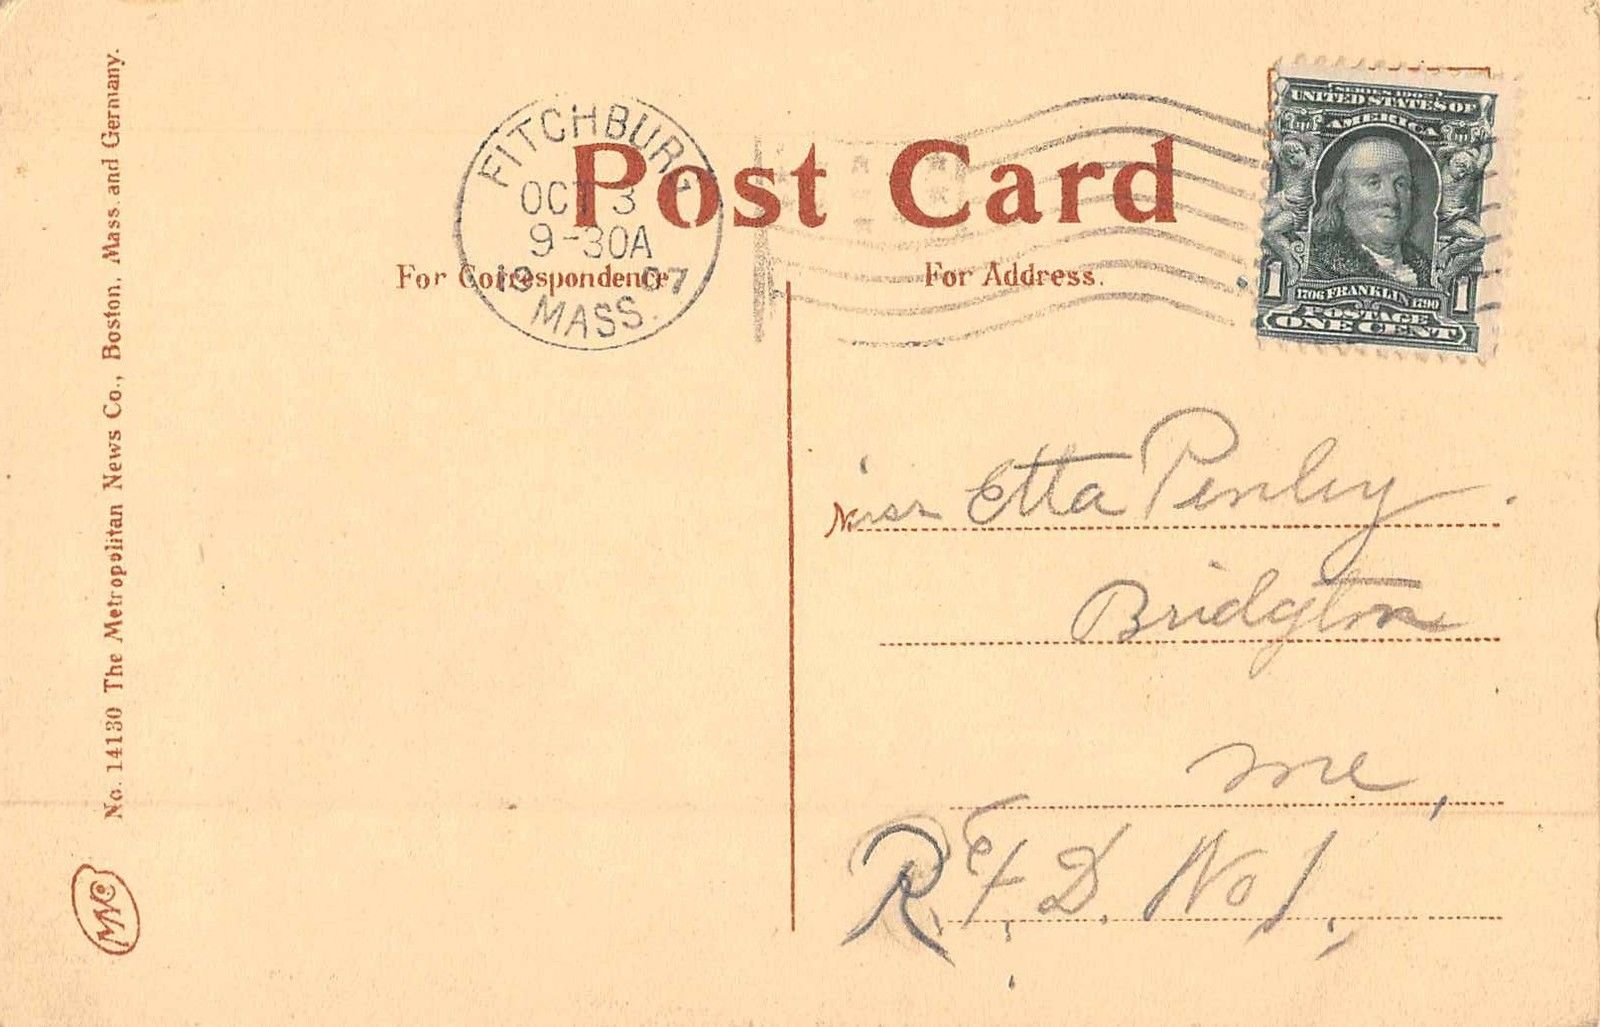 Post Card
For Correspondence
For Address.
FITCHBURG
OCT 3
9-30A
1907
MASS.
SERIES 1902
UNITED STATES OF
AMERICA
1706 FRANKLIN 1790
1 1
POSTAGE
ONE CENT
Miss Etta Penley.
Bridgton
Me,
R. F. D. No 1.
No. 14130 The Metropolitan News Co., Boston, Mass. and Germany.
MNCo